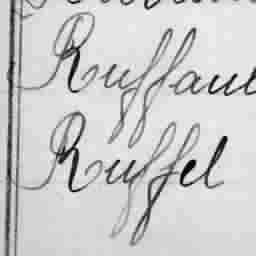 Ruffaul
Ruffel